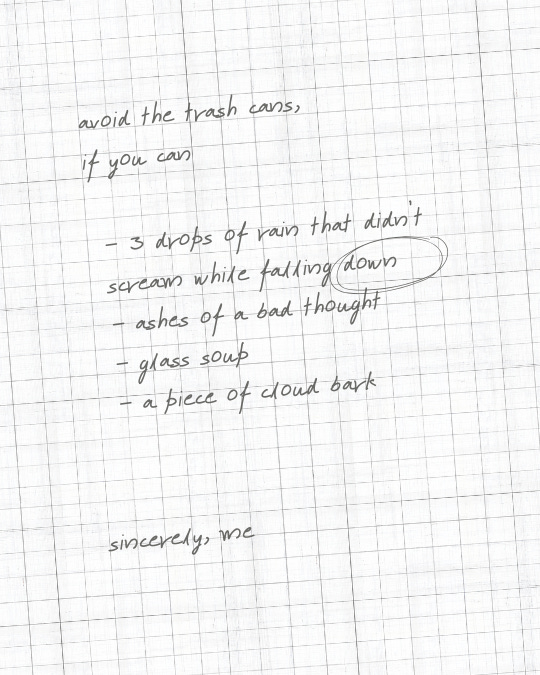 avoid the trash cans,
if you can
- 3 drops of rain that didn't
scream while falling down
- ashes of a bad thought
- glass soup
- a piece of cloud bark
sincerely, me